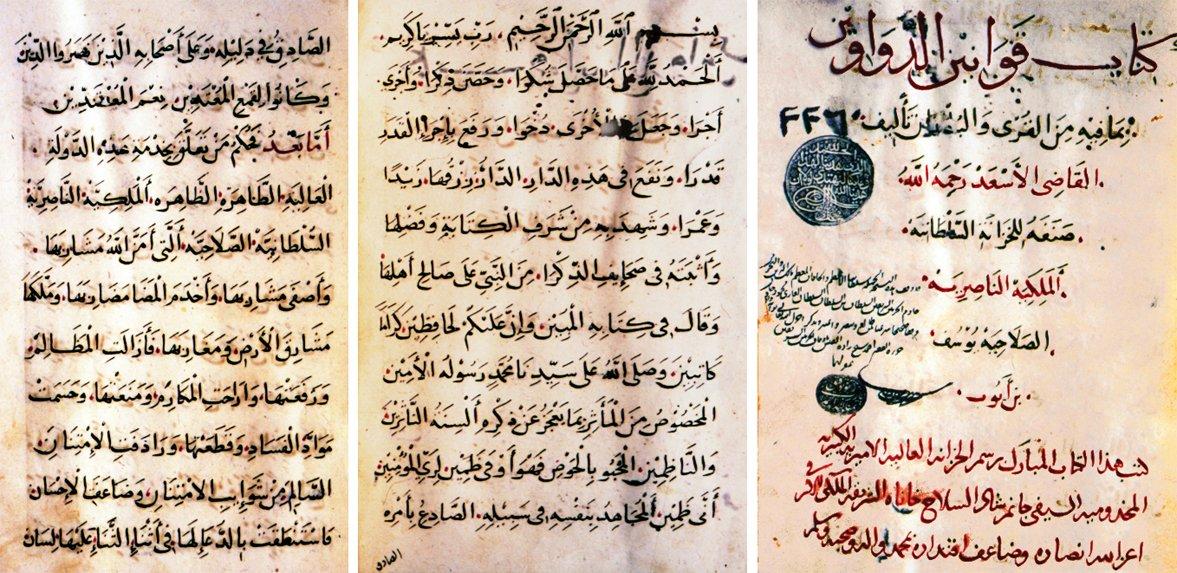 كتاب قوانين الدواوين
بما فيه من القرى والبلدان تأليف
٣٣٦
القاضي الأسعد رحمه الله
صنفه للخزانة السلطانية
الملكية الناصرية
الصلاحية يوسف
بن أيوب
كتب هذا الكتاب المبارك برسم الخزانة العالية الاميرية الكبيرية
المخدومية السيفي جانم شاد السلاح خاناه الشريفة الملكي
اعز الله انصاره وضاعف اقتداره بمحمد واله وصحبه وسلم
بسم الله الرحمن الرحيم رب يسر يا كريم
الحمد لله على ما حصل شكرا وحصن ذكرا وأجرى
أجرا وجعل الأخرى ذخرا ورفع بإجراء القدر
قدرا ونفع في هذه الدار الدار رزقها زيدا
وعمرا وشهد به من شرف الكتابة وفضلها
وأثبته في صحايف الذكرا من النبي على صالح أهلها
وقال في كتابه المبين وإن عليكم لحافظين كراما
كاتبين وصلى الله على سيدنا محمد رسوله الأمين
المخصوص من المآثر بما يعجز عن ذكره ألسنة الناثرين
والناظمين المحبو بالحوض فهو أوفى ظمين لري المؤمنين
أنى ظمين المجاهد بنفسه في سبيله الصادع بأمره
الصادق
الصادق في دليله وعلى أصحابه الذين نصروا الدين
وكانوا لقمع المعتدين نعم المعتمدين
أما بعد فحكم من تعلق بخدمة هذه الدولة
العالية الطاهرة الظاهرة الملكية الناصرية
السلطانية الصلاحية التي أمن الله مشاربها
وأصفى مشاربها وأخدم المضا مضاربها وملكها
مشارق الأرض ومغاربها فأزالت المظالم
ورفعتها وأزاحت المكاره ومنعتها وحسمت
مواد الفساد وقطعتها ورادفت الامتنان
السالم من شوايب الامتنان وضاعف الإحسان
فاستنطقت بالدعا لها في أثناء الثناء عليها لسان